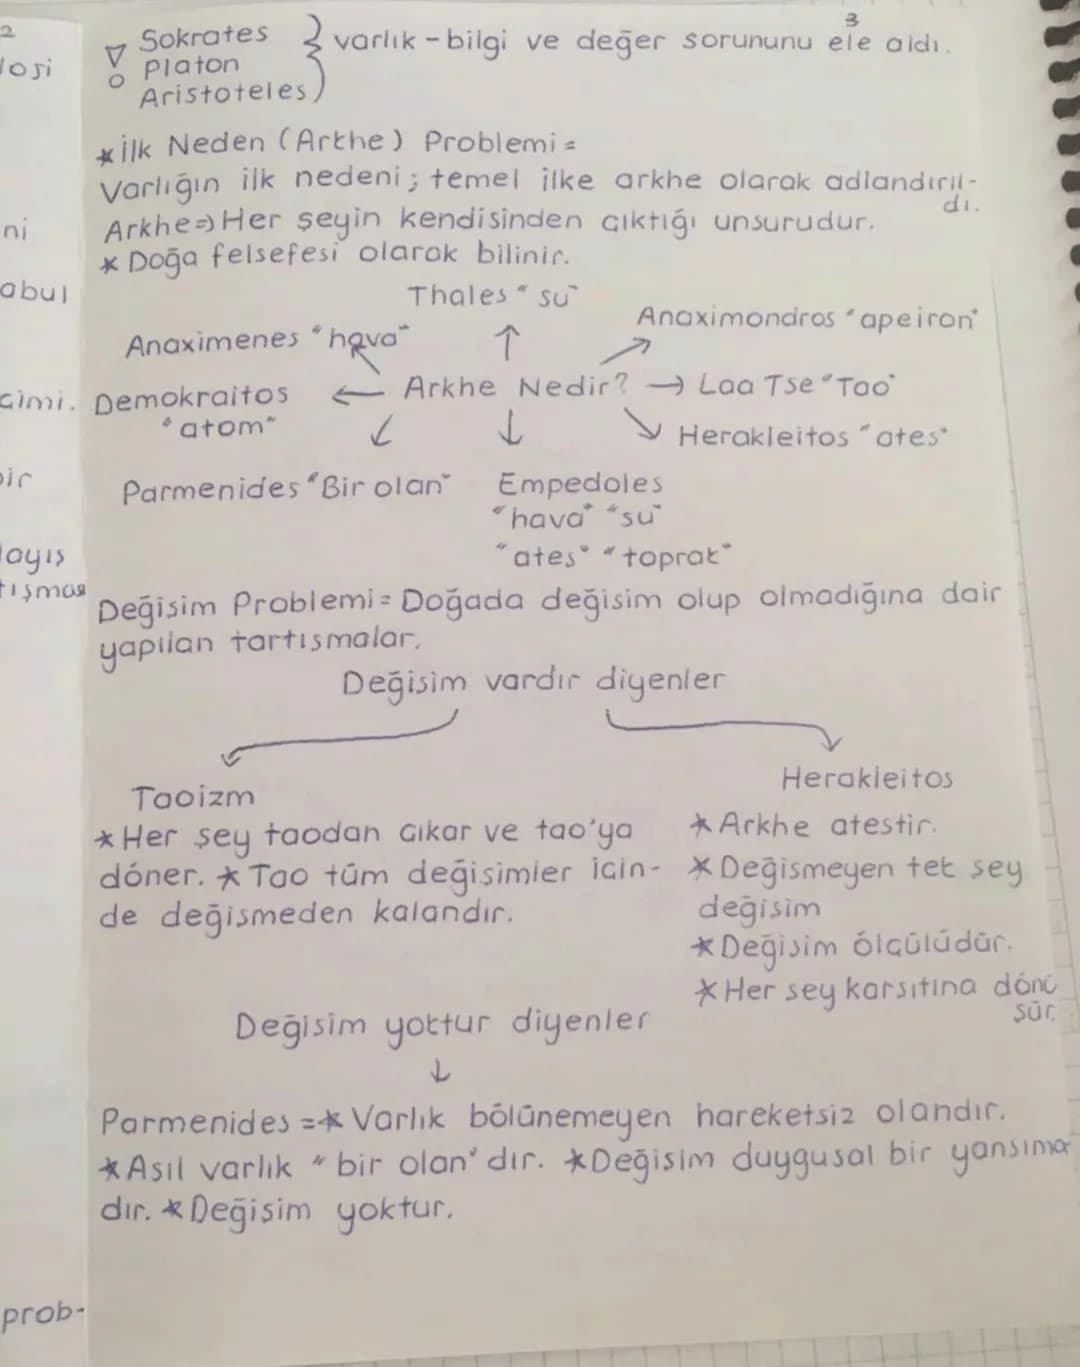 2
losi
ni
abul
cimi.
bir
layış
tışmas
prob-
3
Sokrates
Platon
Aristoteles
varlık - bilgi ve değer sorununu ele aldı.
* İlk Neden (Arkhe) Problemi =
Varlığın ilk nedeni; temel ilke arkhe olarak adlandırıl-
dı.
Arkhe => Her şeyin kendisinden çıktığı unsurudur.
* Doğa felsefesi olarak bilinir.
Thales "su"
Anaximenes "hava"
Anaximondros "apeiron"
Demokraitos
"atom"
← Arkhe Nedir? → Laa Tse "Tao"
Herakleitos "ates"
Parmenides "Bir olan"
Empedoles
"hava" "su"
"ates" "toprak"
Değisim Problemi = Doğada değisim olup olmadığına dair
yapılan tartısmalar.
Değisim vardır diyenler
Taoizm
* Her şey taodan cıkar ve tao'ya
döner. * Tao tüm değisimler icin-
de değismeden kalandır.
Herakleitos
* Arkhe atestir.
* Değismeyen tek sey
değisim
* Değisim ölçülüdür.
* Her sey karsıtına dönü
şür.
Değisim yoktur diyenler
↓
Parmenides = * Varlık bölünemeyen hareketsiz olandır.
* Asıl varlık "bir olan" dır. * Değisim duygusal bir yansıma
dır. * Değişim yoktur.